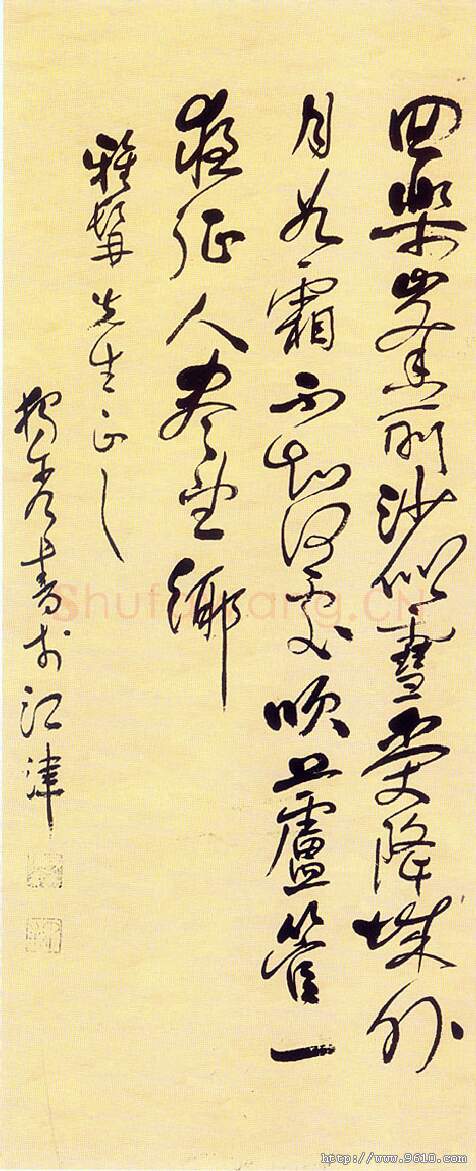 回樂峯前沙似雪受降城外
月如霜不知何處吹蘆管一
夜征人盡望鄉
雅髯先生正之
獨秀書於江津
Shufawang.CN
http://www.9610.com